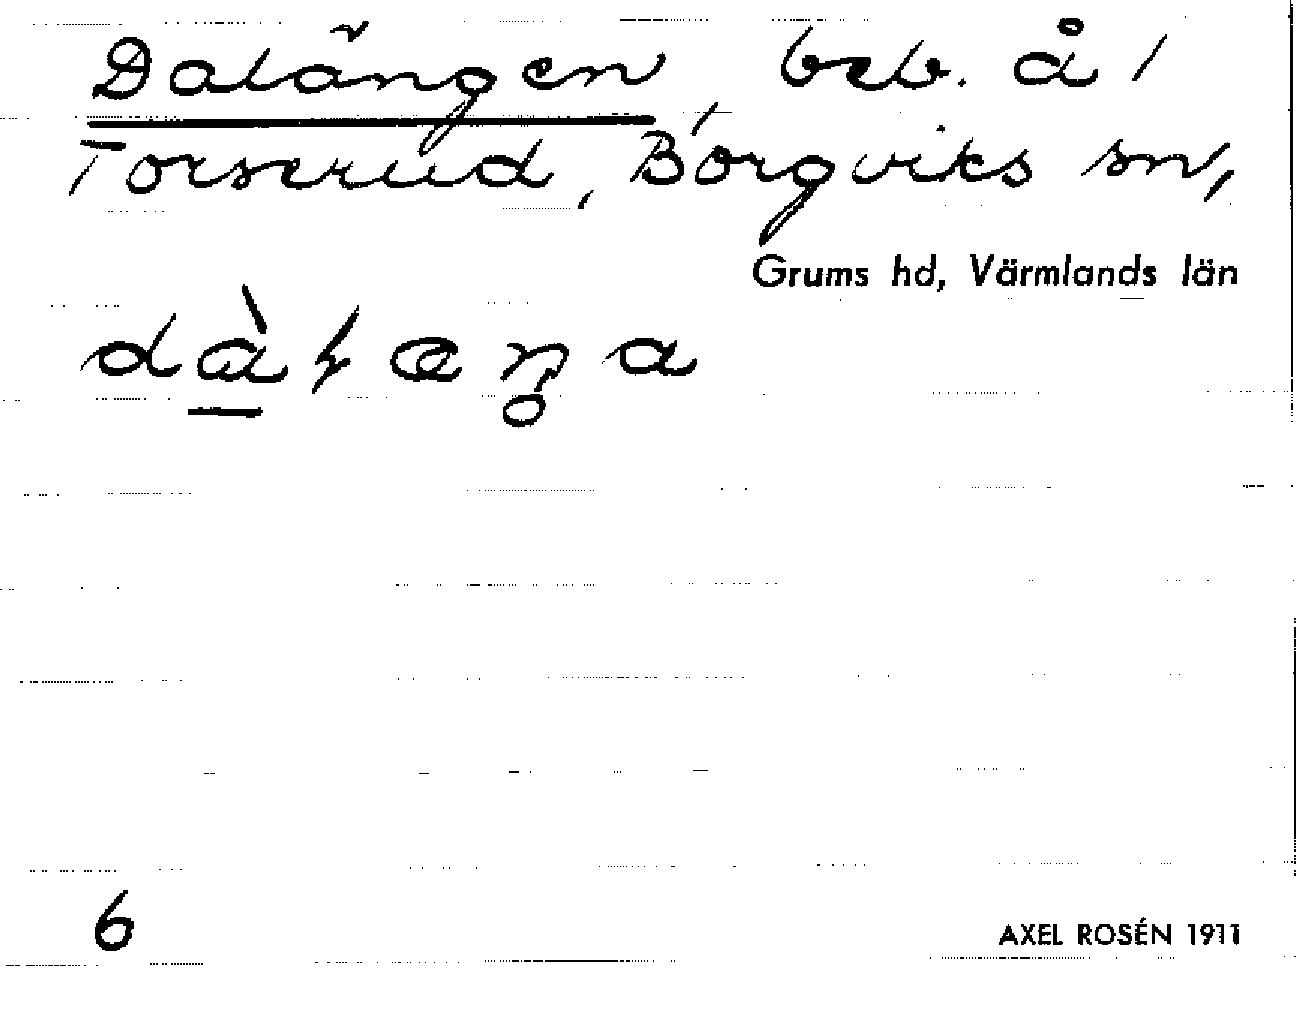 Dalängen, beb. å 1
Torserud, Borgviks sn,
Grums hd, Värmlands län
6
AXEL ROSÉN 1911